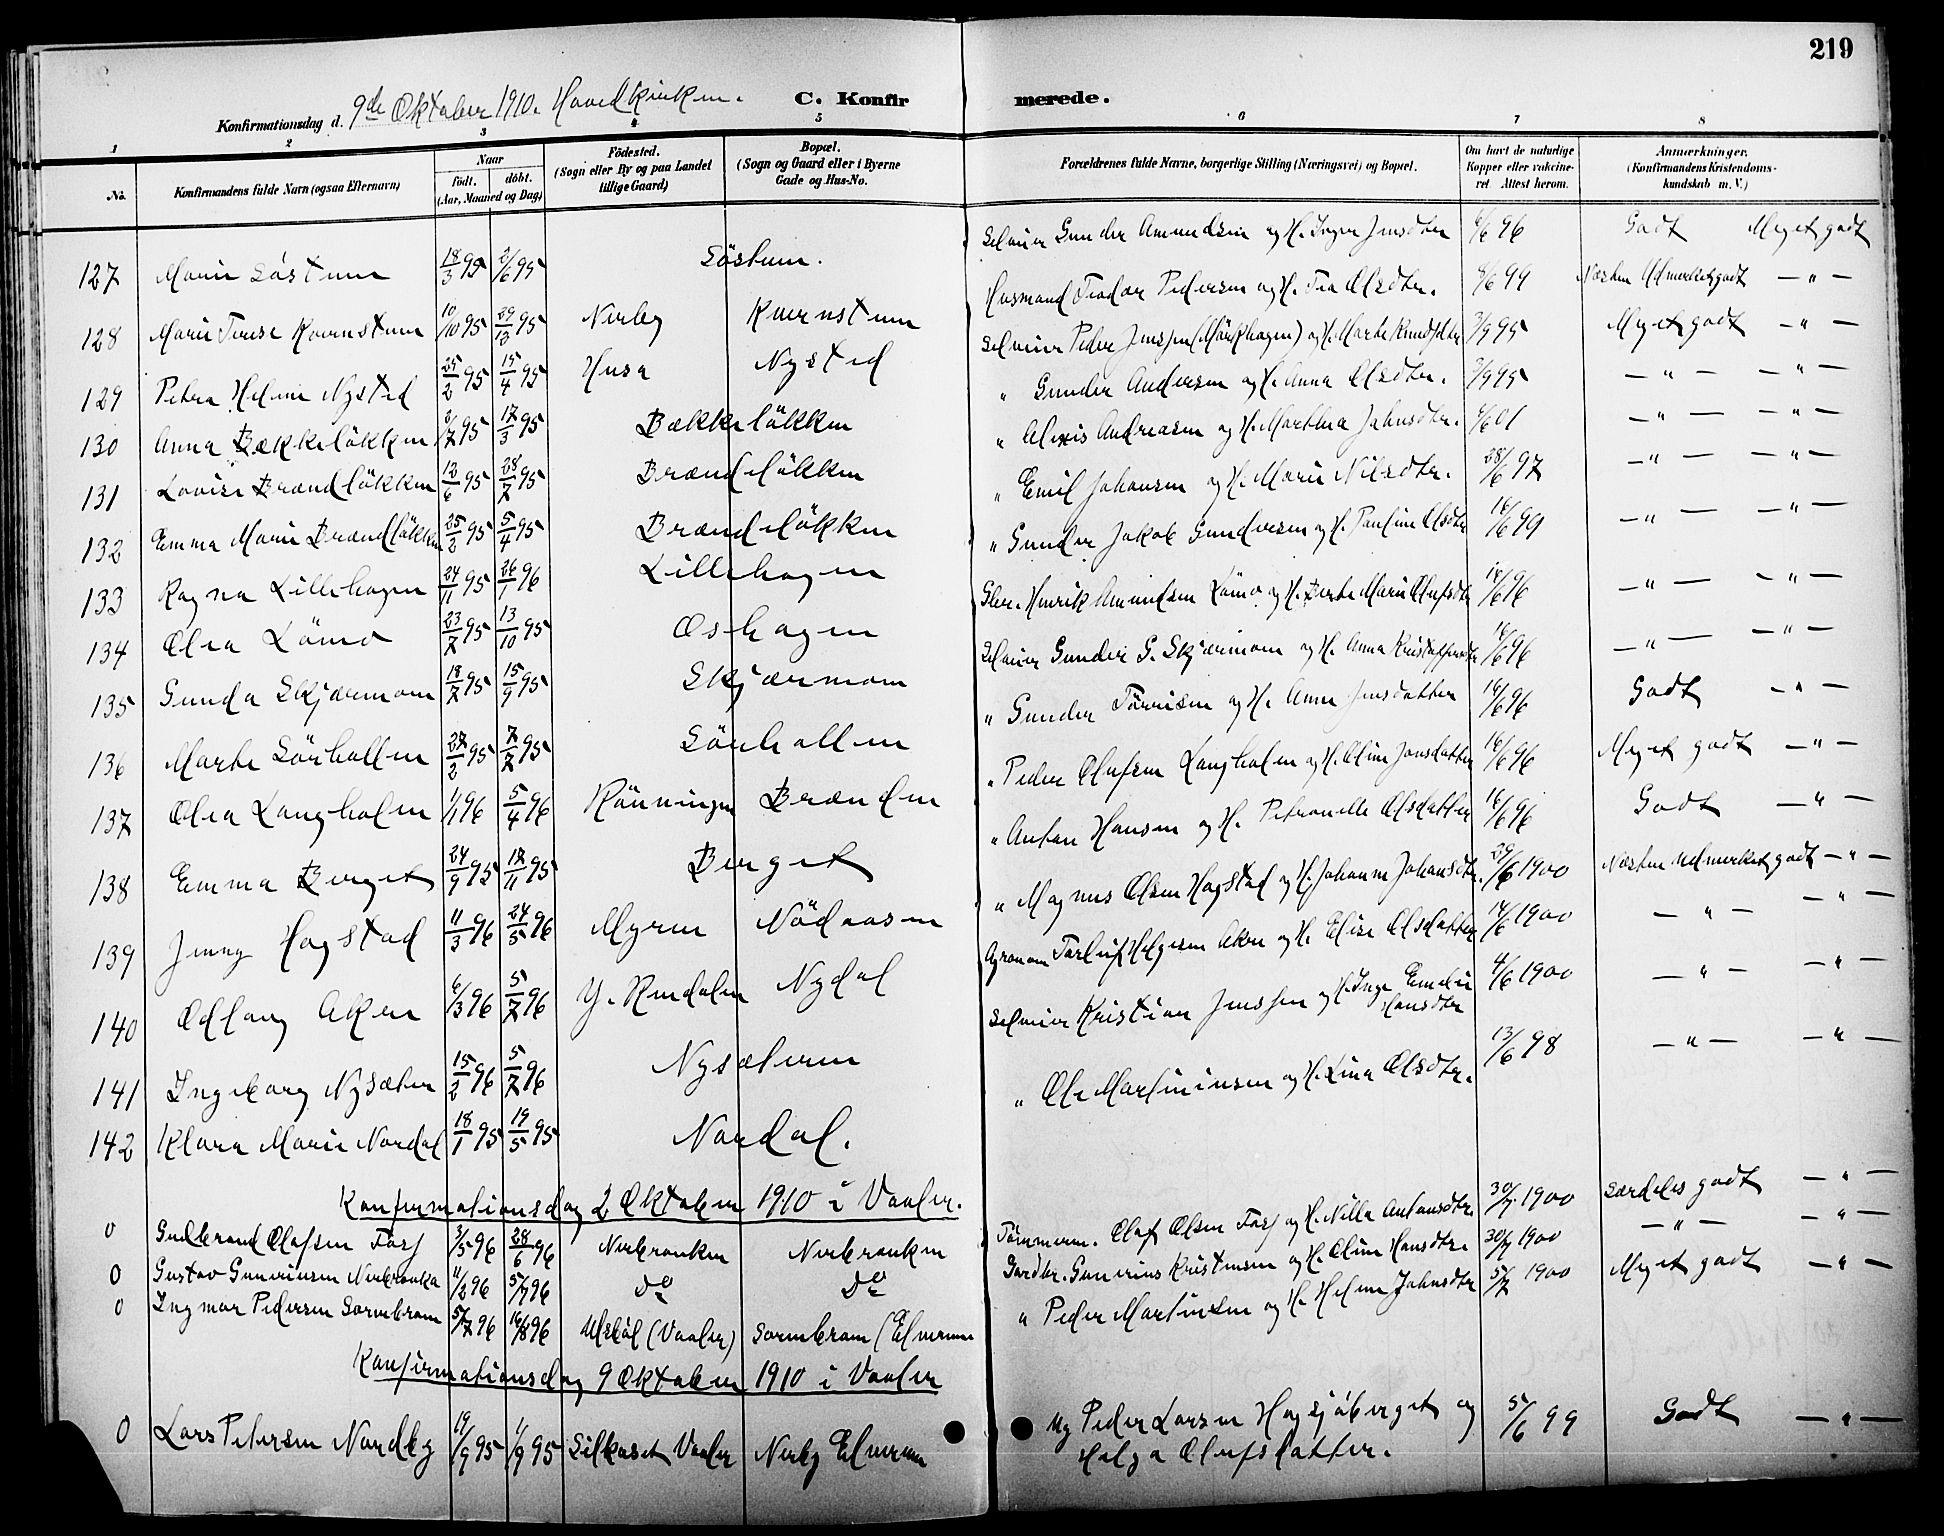 219
Konfirmationsdag d. 9de Oktober 1910. Hovedkirken. C. Konfirmerede.
1 2 3 4 5 6 7 8
No. Konfirmandens fulde Navn (ogsaa Efternavn) Naar født. døbt. (Aar, Maaned og Dag) Fødested. (Sogn eller By og paa Landet tillige Gaard) Bopæl. (Sogn og Gaard eller i Byerne Gade og Hus-No. Forældrenes fulde Navne, borgerlige Stilling (Næringsvei) og Bopæl. Om havt de naturlige Kopper eller vakcineret. Attest herom. Anmærkninger. (Konfirmandens Kristendomskundskab m. V.)
127 Marie Søstuen 18/3 95 2/6 95 Søstuen. Selveier Gunder Amundsen og H. Inger Jensdtr 6/6 96 Godt Meget godt
128 Marie Terese Kvernstuen 10/10 95 29/12 95 Nerby Kvernstuen Husmand Teodor Pedersen og H. Tea Olsdtr. 8/6 99 Næsten Udmerketgodt — " —
129 Petra Helene Nysted 25/2 95 15/4 95 Husa Nysted Selveier Peder Jenssen (Mørkhagen) og H. Marte Knudsdtr 2/9 95 Meget godt — " —
130 Anna Bækkeløkken 2/2 95 17/3 95 Bækkeløkken " Gunder Andersen og H. Anna Olsdtr. 2/9 95 — " — — " —
131 Lovise Brændløkken 12/6 95 28/7 95 Brændløkken " Alexis Andreasen og H. Marthea Johnsdtr. 4/6 01 — " — — " —
132 Emma Marie Brændløkken 25/2 95 5/4 95 Brændløkken " Emil Johansen og H. Marie Nilsdtr. 28/6 97 — " — — " —
133 Ragna Lillehagen 24/11 95 26/1 96 Lillehagen " Gunder Jakob Gundersen og H. Pauline Olsdtr 16/6 99 — " — — " —
134 Olea Lømo 23/7 95 13/10 95 Oshagen Gbr. Henrik Amundsen Lømo og H. Berte Marie Olufsdtr 16/6 96 — " — — " —
135 Gunda Skjærmoen 18/7 95 15/9 95 Skjærmoen Selveier Gunder G. Skjærmoen og H. Anna Kristoffersdtr 16/6 96 — " — — " —
136 Marte Sørhollen 27/2 95 7/7 95 Sørhollen " Gunder Tørrisen og H. Anne Jensdatter 16/6 96 Godt — " —
137 Olea Langholen 1/1 96 5/4 96 Rønningen Brænden " Peder Olufsen Langholen og H. Oline Jonsdatter 16/6 96 Meget godt — " —
138 Emma Berget 24/9 95 17/11 95 Berget " Anton Hansen og H. Petronelle Olsdatter 16/6 96 Godt — " —
139 Jenny Hagstad 11/3 96 24/5 96 Myren Nødaasen " Magnus Olsen Hagstad og H. Johanne Johansdtr. 29/6 1900 Næsten udmerket godt — " —
140 Odlaug Aken 6/3 96 5/7 96 Y. Rendalen Nydal Agronom Torleif Helgesen Aken og H. Elise Olsdatter 14/6 1900 — " — — " —
141 Ingeborg Nysæter 15/2 96 5/7 96 Nysæteren Selveier Kristian Jenssen og H. Inga Emelie Hansdtr 4/6 1900 — " — — " —
142 Klara Marie Nordal 18/1 95 19/5 95 Nordal. " Ole Martiniusen og H. Lina Olsdtr. 13/6 98 — " — — " —
Konfirmationsdag 2 Oktober 1910 i Vaaler.
0 Gulbrand Olafsen Torf 3/5 96 28/6 96 Nerbronken Nerbronken Tømmerm. Olaf Olsen Torf og H. Nilla Antonsdtr. 30/7 1900 særdeles godt — " —
0 Gustav Guneriusen Nerbronka 11/2 96 5/7 96 do do Gardbr. Gunerius Kristensen og H. Oline Hansdtr. 30/7 1900 — " — — " —
0 Ingmar Pedersen Sormbroen 5/7 96 16/8 96 Uskøl (Vaaler) Sormbroen (Elverum " Peder Martinsen og H. Helene Johnsdtr 5/7 1900 Meget godt — " —
Konfirmationsdag 9 Oktober 1910 i Vaaler
0 Lars Petersen Nordby 19/9 95 1/9 95 Silkeset Vaaler Nerby Elverum Ug Peder Larsen Hagsjøberget og 5/6 99 Godt — " —
Helga Olufsdatter.